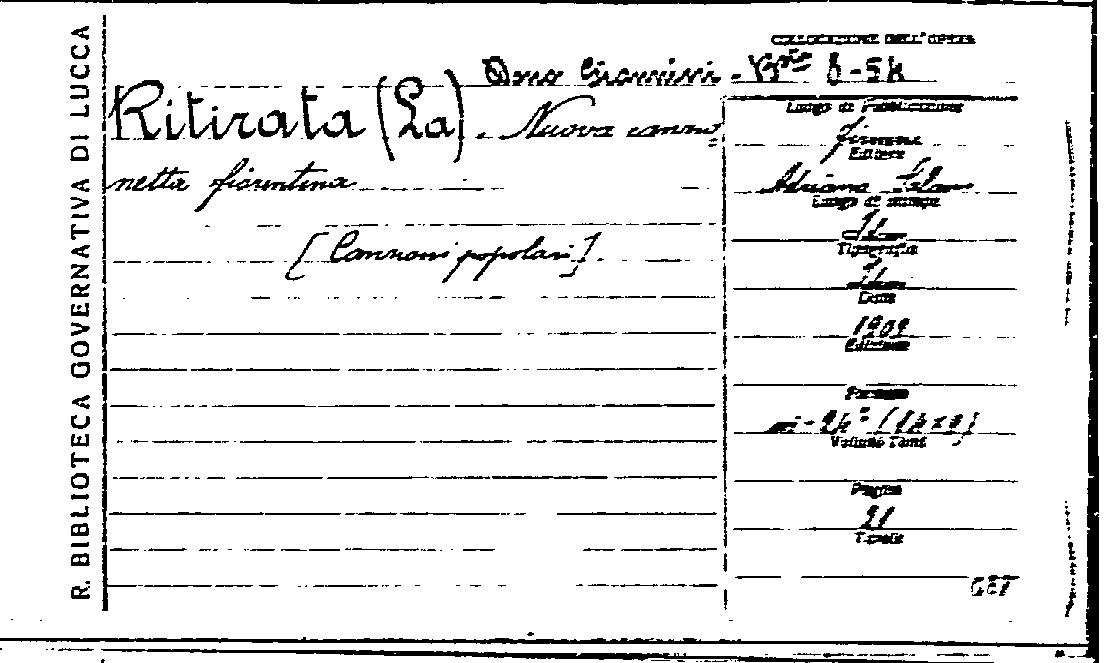 R. BIBLIOTECA GOVERNATIVA DI LUCCA
COLLOCAZIONE DELL'OPERA
Dono Giannini - B.ta 8-54
Ritirata (La). - Nuova canzo
netta fiorentina
[Canzoni popolari].
Luogo di Pubblicazione
Firenze
Editore
Adriano Salani
Luogo di stampa
Id.
Tipografia
Id.
Data
1909
Edizione
Formato
in-24°
Volume Tomi
Pagine
21
Tavole